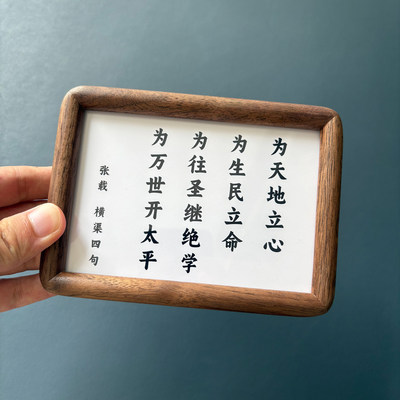 为天地立心
为生民立命
为往圣继绝学
为万世开太平
张载 横渠四句